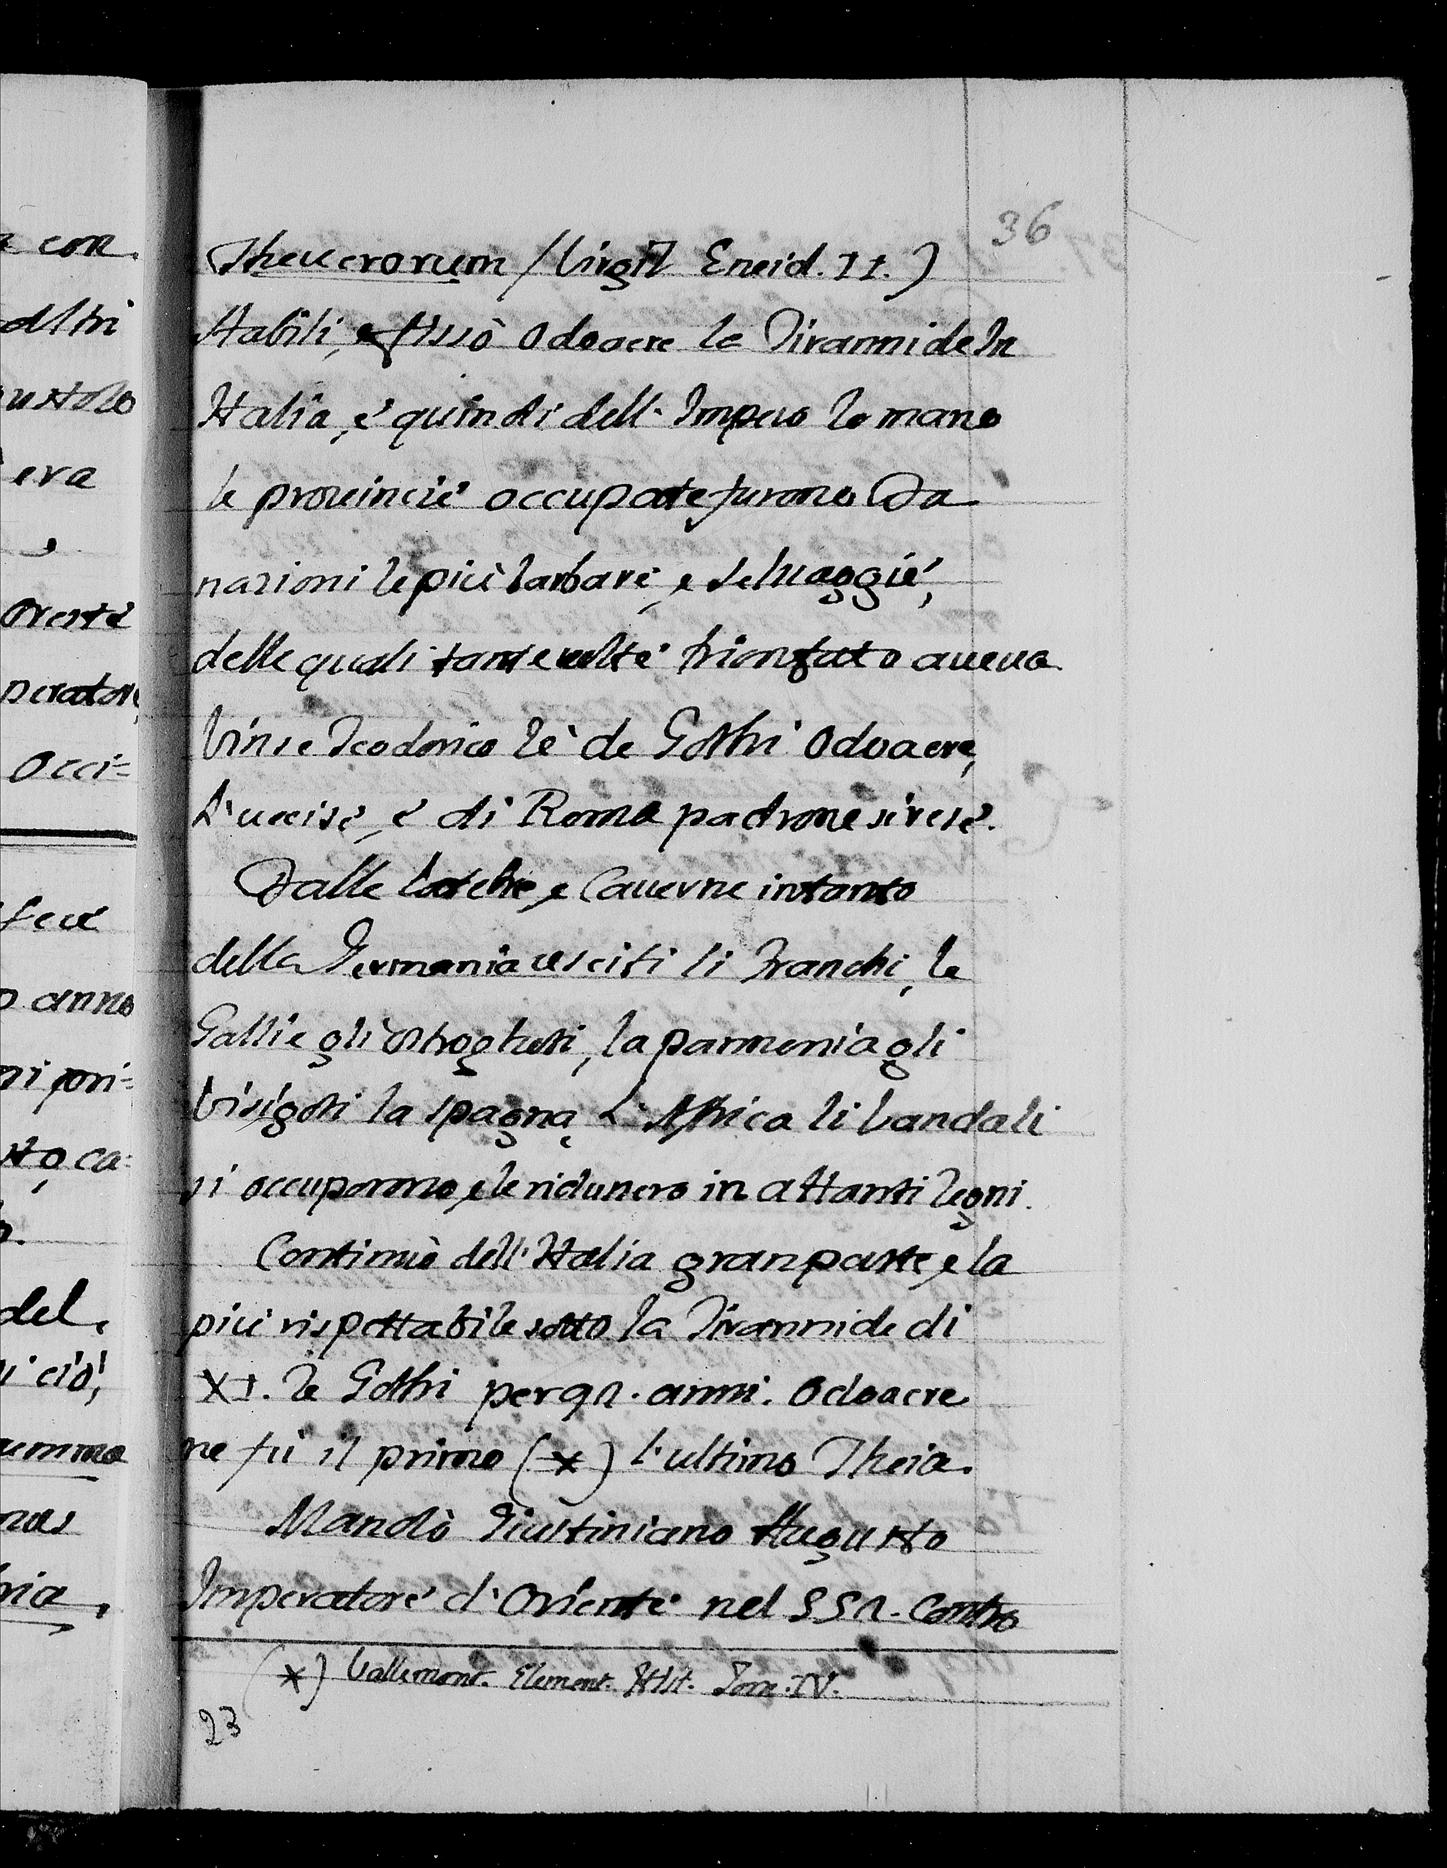 36
Theucrorum (Virgil Eneid. II.)
Stabilì, e fissò Odoacre la Tirannide In
Italia, e' quindi dell' Impero Romano
le provincie' occupate furono Da
nazioni le più barbare', e selvaggie',
delle quali tante volte' trionfato aveva
Vinse Teodorico Rè de Gothi Odoacre,
L'uccise', e' di Roma padrone si rese'.
Dalle Latebre, e Caverne intanto
della Germania usciti li Franchi, le
Gallie gli Ostroghoti, la pannonia gli
Visigoti la spagna L'Affrica li Vandali
si occuporono, e le ridunero in attanti Regni.
Continuò dell'Italia gran parte, e la
più rispettabile sotto la Tirannide di
XI. Re Gothi per 92. anni. Odoacre
ne fù il primo (*) l'ultimo Theia.
Mandò Giustiniano Augusto
Imperatore' d'Oriente' nel 552. Contro
(*) Vallemont. Element. Hist. Tom. IV.
23
a con
altri
era
Oreste'
peratore
Occi=
fece
o anno
del
ciò,